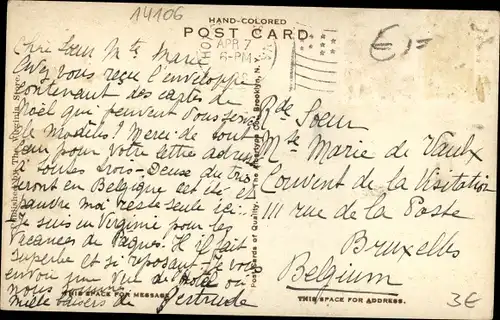 14106
HAND-COLORED
POST CARD
APR 7
6-PM
E1=
Chre Soeur Mte Marie
Avez vous reçu l'enveloppe
contenant des cartes de
Noël qui peuvent vous servir
de modèles? Merci de tout
coeur pour votre lettre
toutes trois - Denise du
iront en Belgique cet été et
pauvre moi reste seule ici..
Je suis en Virginie pour les
Vacances de Pâques. Il fait
superbe et si reposant. Je vous
envoie une vue de
nous sommes.
Mille baisers de Gertrude
THIS SPACE FOR MESSAGE
Post Cards of Quality. - The Albertype Co., Brooklyn, N. Y.
Rde Soeur
Mte Marie de Vaulx
Couvent de la Visitation
111 rue de la Poste
Bruxelles
Belgium
THIS SPACE FOR ADDRESS.
3E